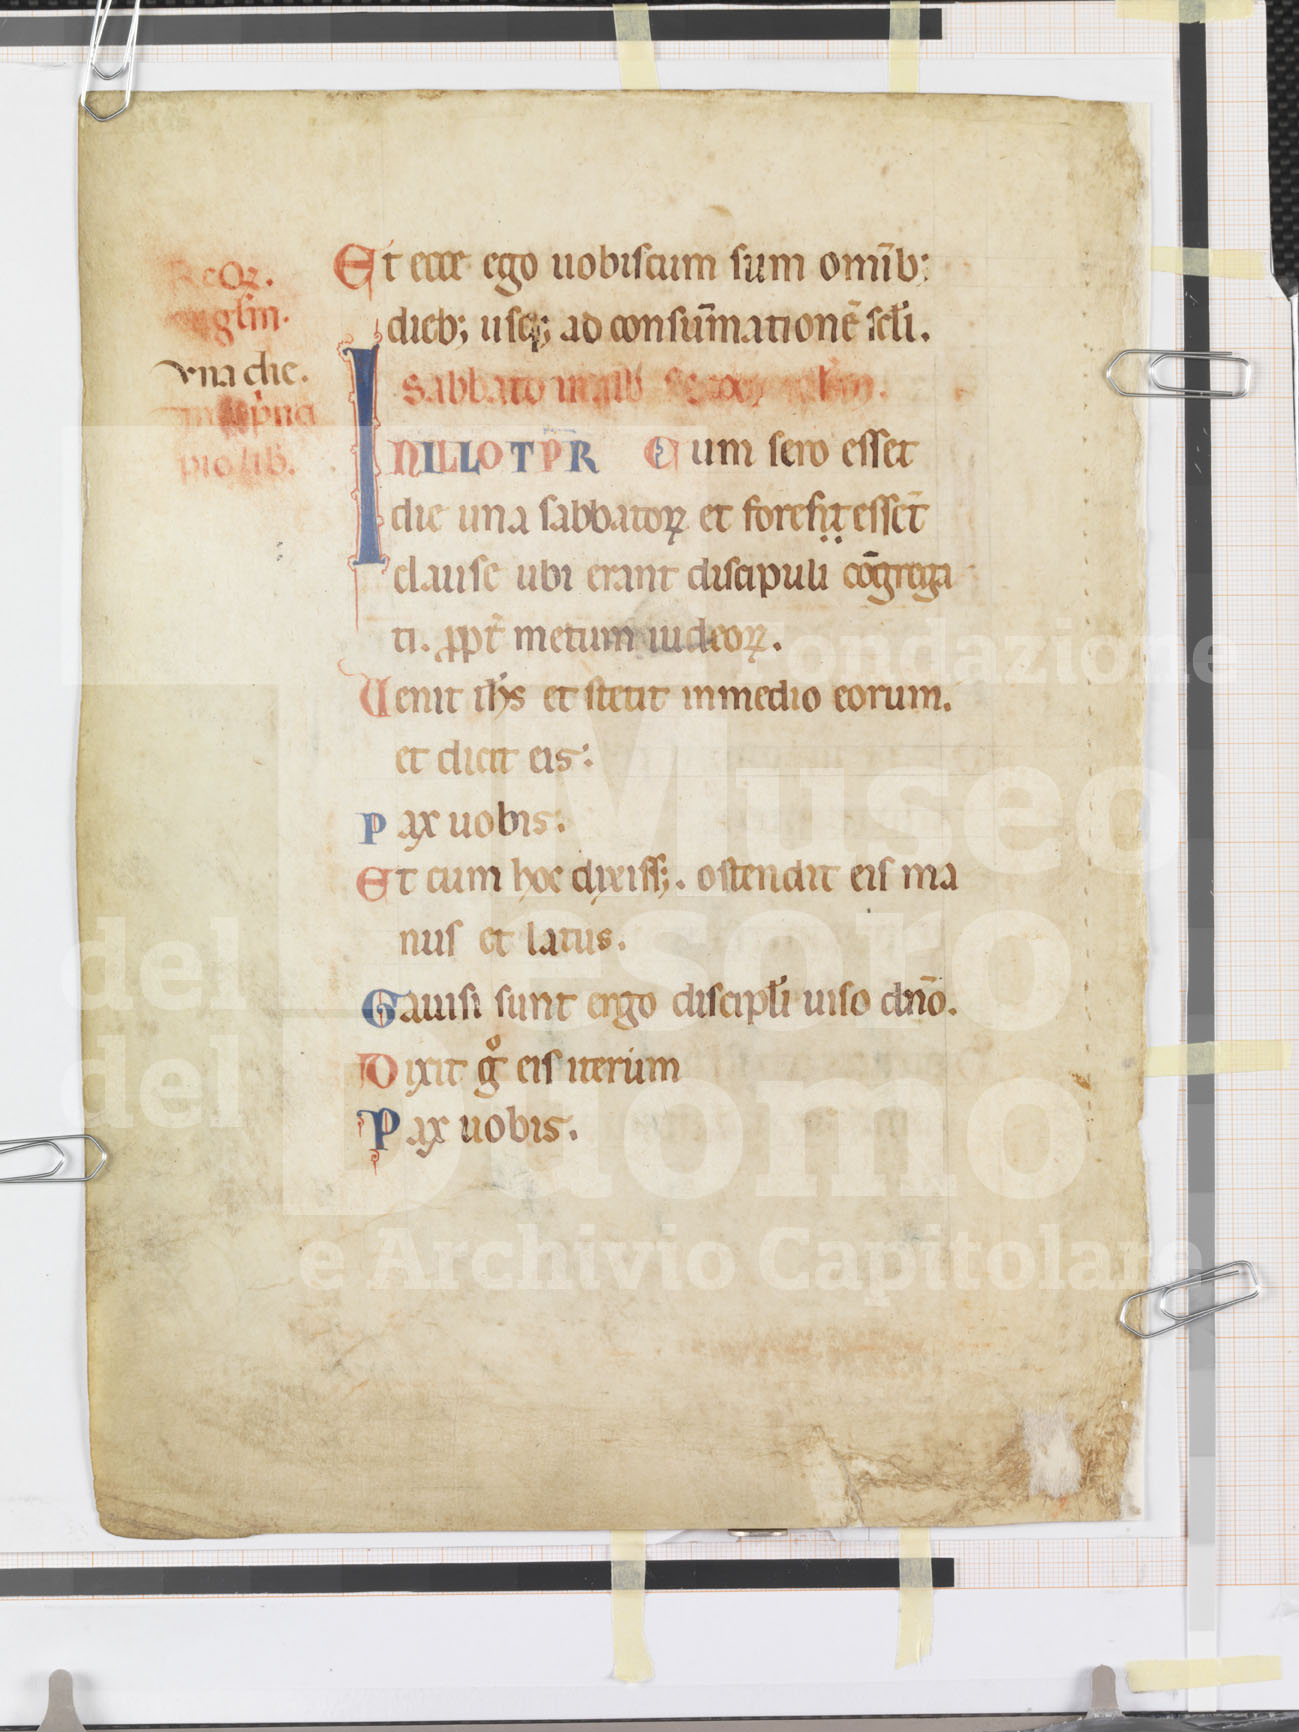 Et ecce ego uobiscum sum omīb;
dieb; usq; ad consūmationē scl̓i.
Sabbato in alb
IN ILLO TP̄R Cum sero esset
die una sabbatoꝝ et fores
clause ubi erant discipuli cōgrega
ti. ꝓpt̄ metum iudeoꝝ.
Uenit ih̄s et stetit in medio eorum.
et dicit eis:
Pax uobis:
Et cum hoc dixiss;. ostendit eis ma
nus et latus.
Gauisi sunt ergo discipl̓i uiso dn̄o.
Dixit gͦ eis iterum
Pax uobis.
una die.
Fondazione
Museo
del Tesoro
del Duomo
e Archivio Capitolare